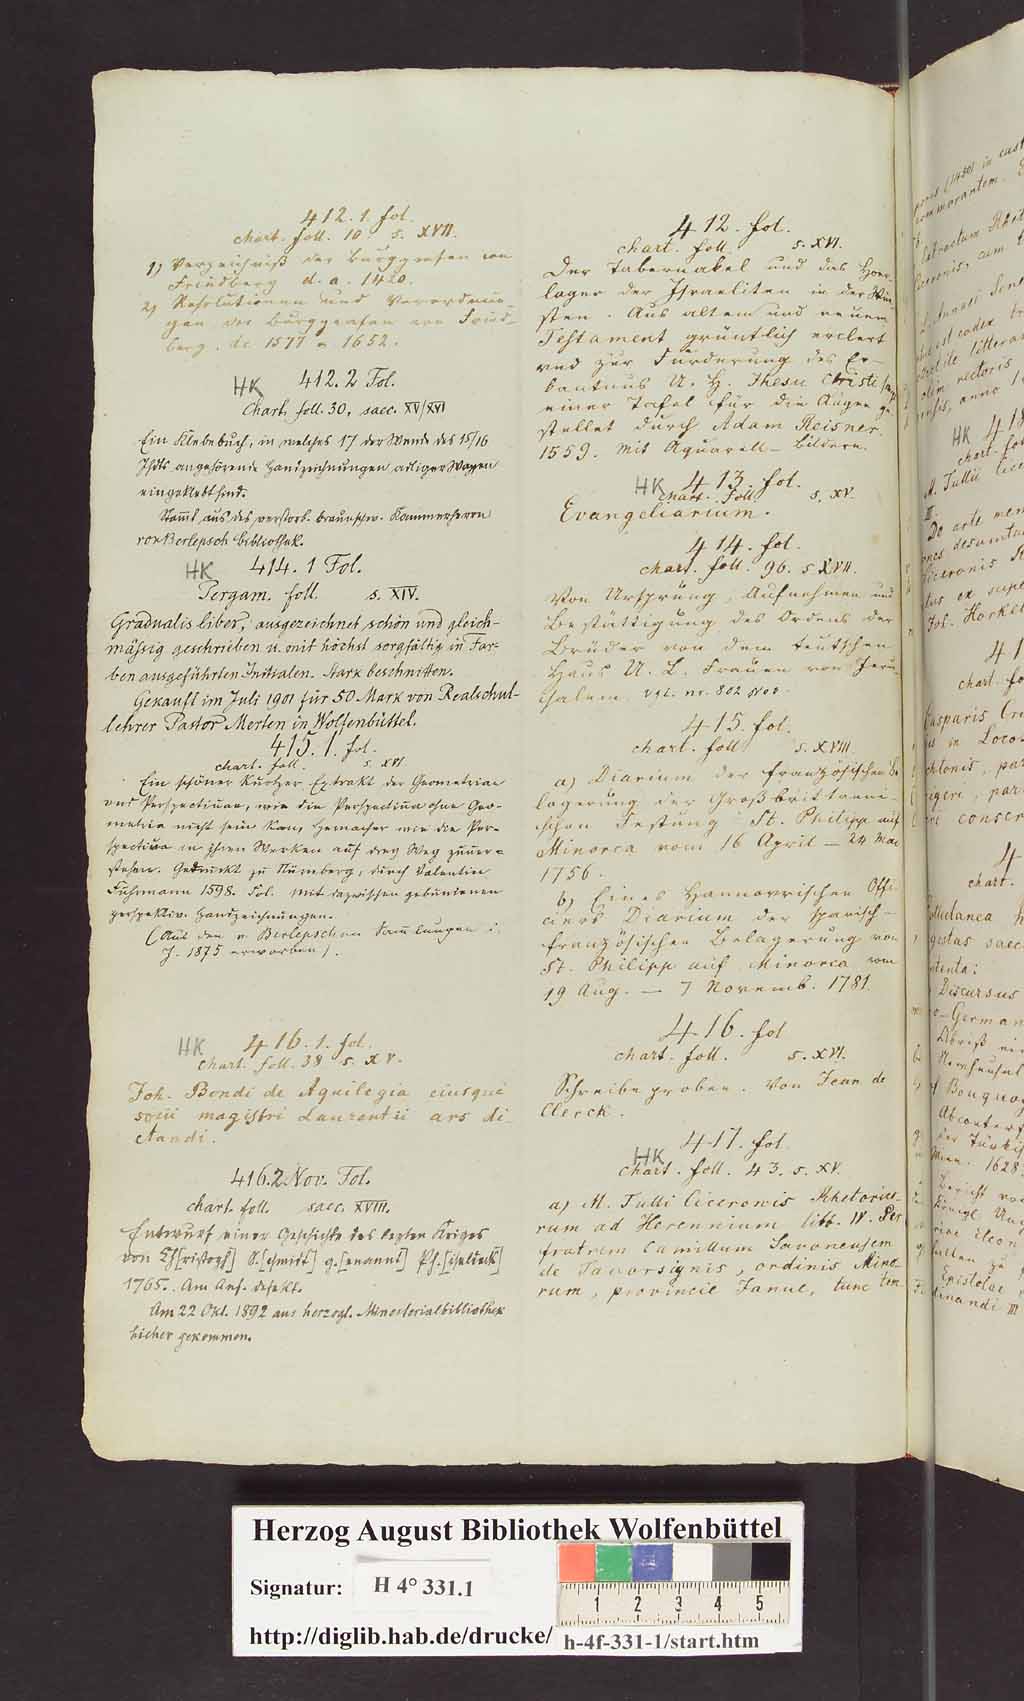 412. 1. fol.
chart. foll. 10. s. XVII.
1) Verzeichniß der Burggrafen von
Friedberg d. a. 1420.
2) Resolutionen und Verordnun-
gen der Burggrafen von Fried-
berg. de 1577 – 1652.
HK 412.2 Fol.
Chart. foll. 30, saec. XV/XVI
Ein Klebebuch, in welches 17 der Wende des 15/16
Jhdts angehörende Handzeichnungen adliger Wappen
eingeklebt sind.
Stammt aus des verstorb. braunschw. Kammerherrn
von Berlepsch Bibliothek.
HK 414. 1 Fol.
Pergam. foll. s. XIV.
Gradualis liber, ausgezeichnet schön und gleich-
mässig geschrieben u. mit höchst sorgfältig in Far-
ben ausgeführten Initialen. Stark beschnitten.
Gekauft im Juli 1901 für 50 Mark von Realschul-
lehrer Pastor Merten in Wolfenbüttel.
415. 1. fol.
chart. foll. s. XVI
Ein schöner kurtzer Extrakt der Geometriae
unnd Perspectiuae, wie die Perspectiua ohne Geo-
metria nicht sein kann, Hernacher wie die Per-
spectiua in ihren Werken auf drey Weg zuuer=
stehen. Gedruckt zu Nürnberg, durch Valentin
Fuhrmann 1598. Fol. Mit dazwischen gebundenen
perspektiv. Handzeichnungen.
(Aus den v. Berlepschen Sammlungen i.
J. 1875 erworben).
HK 416. 1. fol.
chart. foll. 38 s. XV.
Joh. Bondi de Aquilegia eiusque
socii magistri Laurentii ars di-
ctandi.
416.2 Nov. Fol.
chart. foll. saec. XVIII.
Entwurf einer Geschichte des letzten Krieges
von Ch[ristoph] S[chmidt] g.[enannt] Ph.[iseldeck]
1765. Am Anf. defekt.
Am 22 Okt. 1892 aus herzogl. Ministerialbibliothek
hieher gekommen.
412. fol.
chart. foll. s. XVI.
Der Tabernakel und das Heer-
lager der Israeliten in der Wü-
sten. Aus altem und neuem
Testament grüntlich erclert
und zur Fürderung des Er-
kantnus U. H. Jhesu Christi
einer Tafel für die Augen ge-
stellet durch Adam Reisner
1559. Mit Aquarell-Bildern.
HK 413. fol.
chart. foll s. XV.
Evangeliarium.
414. fol.
chart. foll. 96. s. XVII.
Von Ursprung, Aufnehmen und
Bestättigung des Ordens der
Brüder von dem teutschen
Haus U. L. Frauen von Jeru-
salem. vgl. nr. 802 Nov.
415. fol.
chart. foll s. XVIII.
a) Diarium der französischen Be-
lagerung der Großbrittanni-
schen Festung St. Philipp auf
Minorca vom 16 April – 24 Mai
1756.
b) Eines Hannovrischen Offi-
ciers Diarium der spanisch-
französischen Belagerung von
St. Philipp auf Minorca vom
19 Aug. – 7 Novemb. 1781.
416. fol
chart. foll. s. XVI.
Schreibeproben. Von Jean de
Clerck.
HK 417. fol.
chart. foll. 43. s. XV.
a) M. Tulli Ciceronis Rhetorico-
rum ad Herennium libb. IV. Per
fratrem Camillum Savonensem
de Tavorsignis, ordinis Mino-
rum, provincie Janue, tunc tem
HK
Herzog August Bibliothek Wolfenbüttel
Signatur: H 4° 331.1
1 2 3 4 5
http://diglib.hab.de/drucke/ h-4f-331-1/start.htm